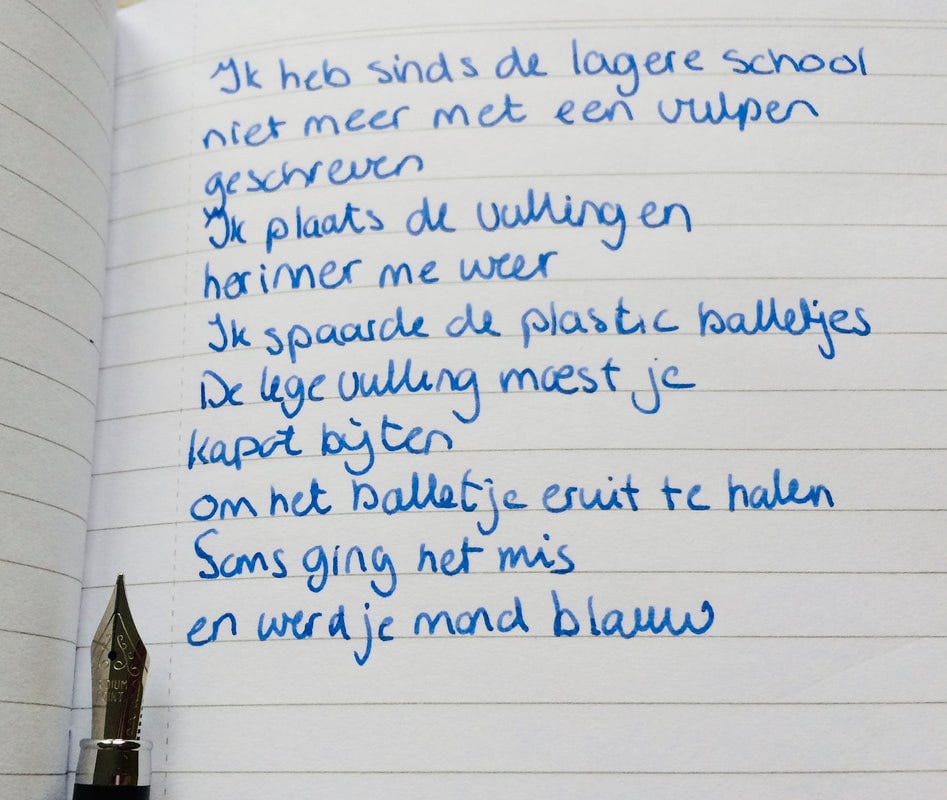 Ik heb sinds de lagere school
niet meer met een vulpen
geschreven
Ik plaats de vulling en
herinner me weer
Ik spaarde de plastic balletjes
De lege vulling moest je
kapot bijten
om het balletje eruit te halen
Soms ging het mis
en werd je mond blauw